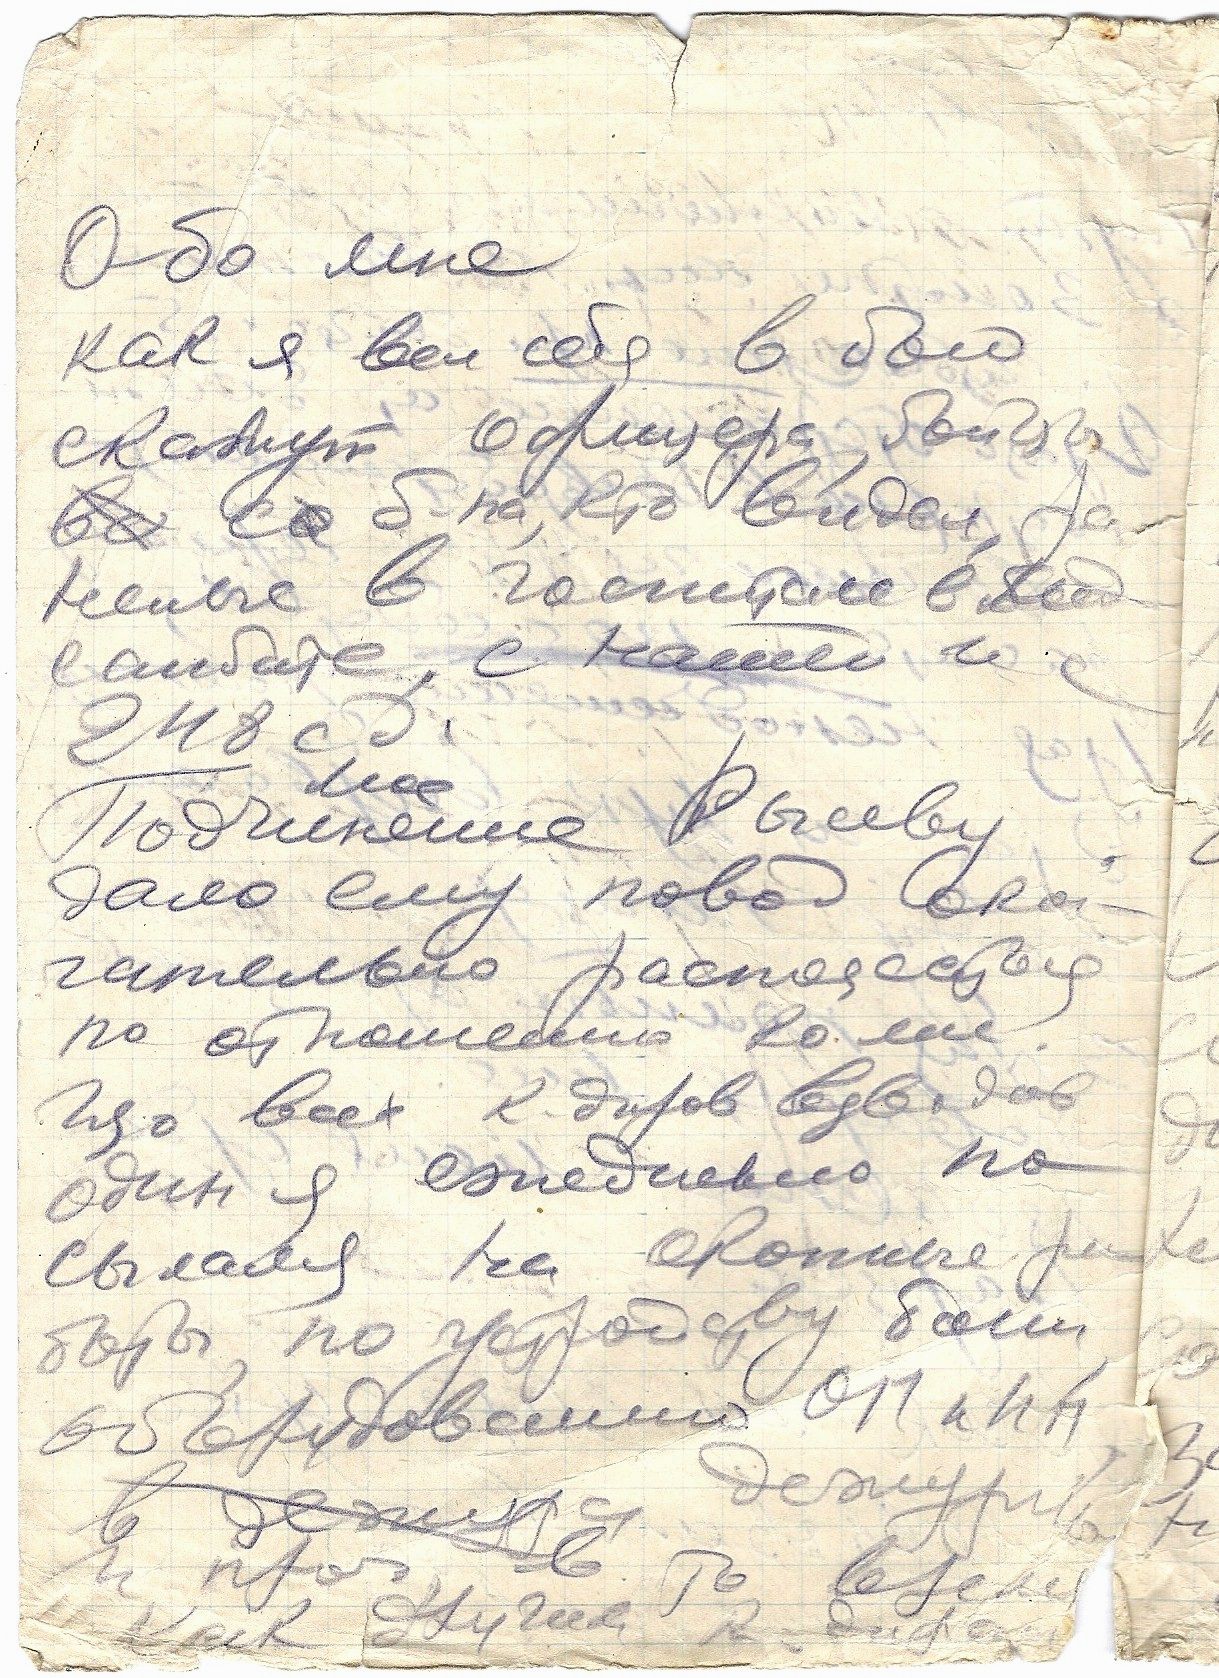 Обо мне
как я вел себя в бою
скажут офицера, бойцы
со б-на, кто видел, ра
неные в госпитале в мед
санбате, с нашей и с
248 сд.
мое
Подчинение Рылеву
дало ему повод окон-
чательно распоясаться
по отношению ко мне.
Из всех к-диров взводов
один я ежедневно по
сылался на окопные ра
боты, по устройству бани
оборудованию ОП и НП
в дежур дежурив
и проч. в то время
как другие к-диры